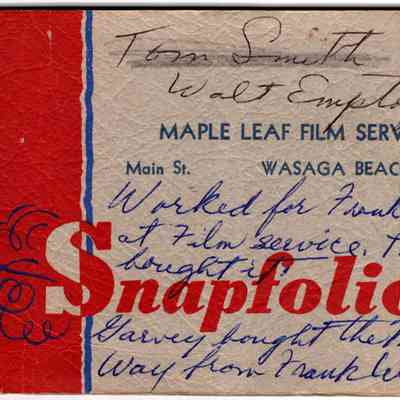 Tom Smith
Walt
MAPLE LEAF FILM SERV
Main St. WASAGA BEAC
Worked for Frank
at Film service.
bought it
Snapfolio
Garvey bought the
Way from Frank